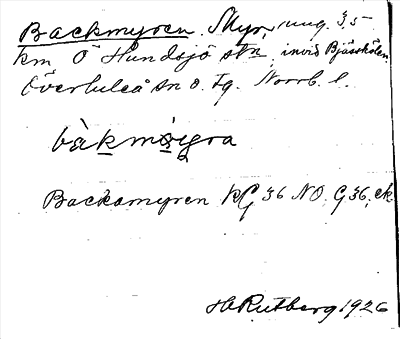 Backmyren. Myr, ung. 3,5
km Ö Hundsjö stn, invid Bjässkölen
Överluleå sn o. tg. Norrb. l.
bàkmýra
Backamyren KG 36 NO. G36, ek.
H Rutberg 1926